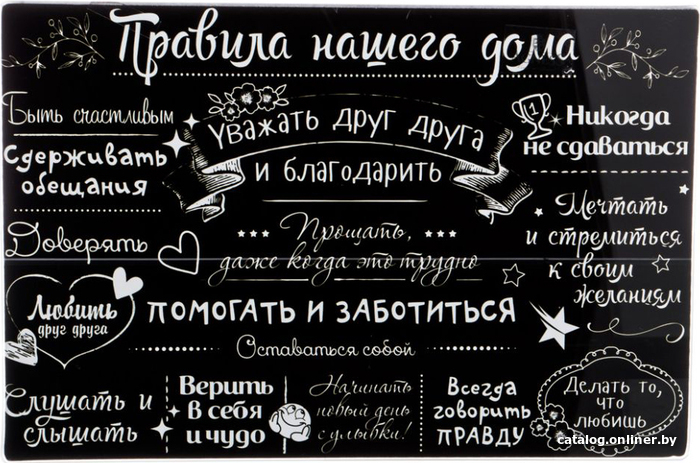 Правила нашего дома
Быть счастливым
Сдерживать
обещания
Доверять
Уважать друг друга
и благодарить
1
Никогда
не сдаваться
Прощать,
даже когда это трудно
Мечтать
и стремиться
к своим
желаниям
Любить
друг друга
ПОМОГАТЬ И ЗАБОТИТЬСЯ
Оставаться собой
Слушать и
слышать
Верить
в себя
и чудо
Начинать
новый день
с улыбки!
Всегда
говорить
ПРАВДУ
Делать то,
что
любишь
catalog.onliner.by